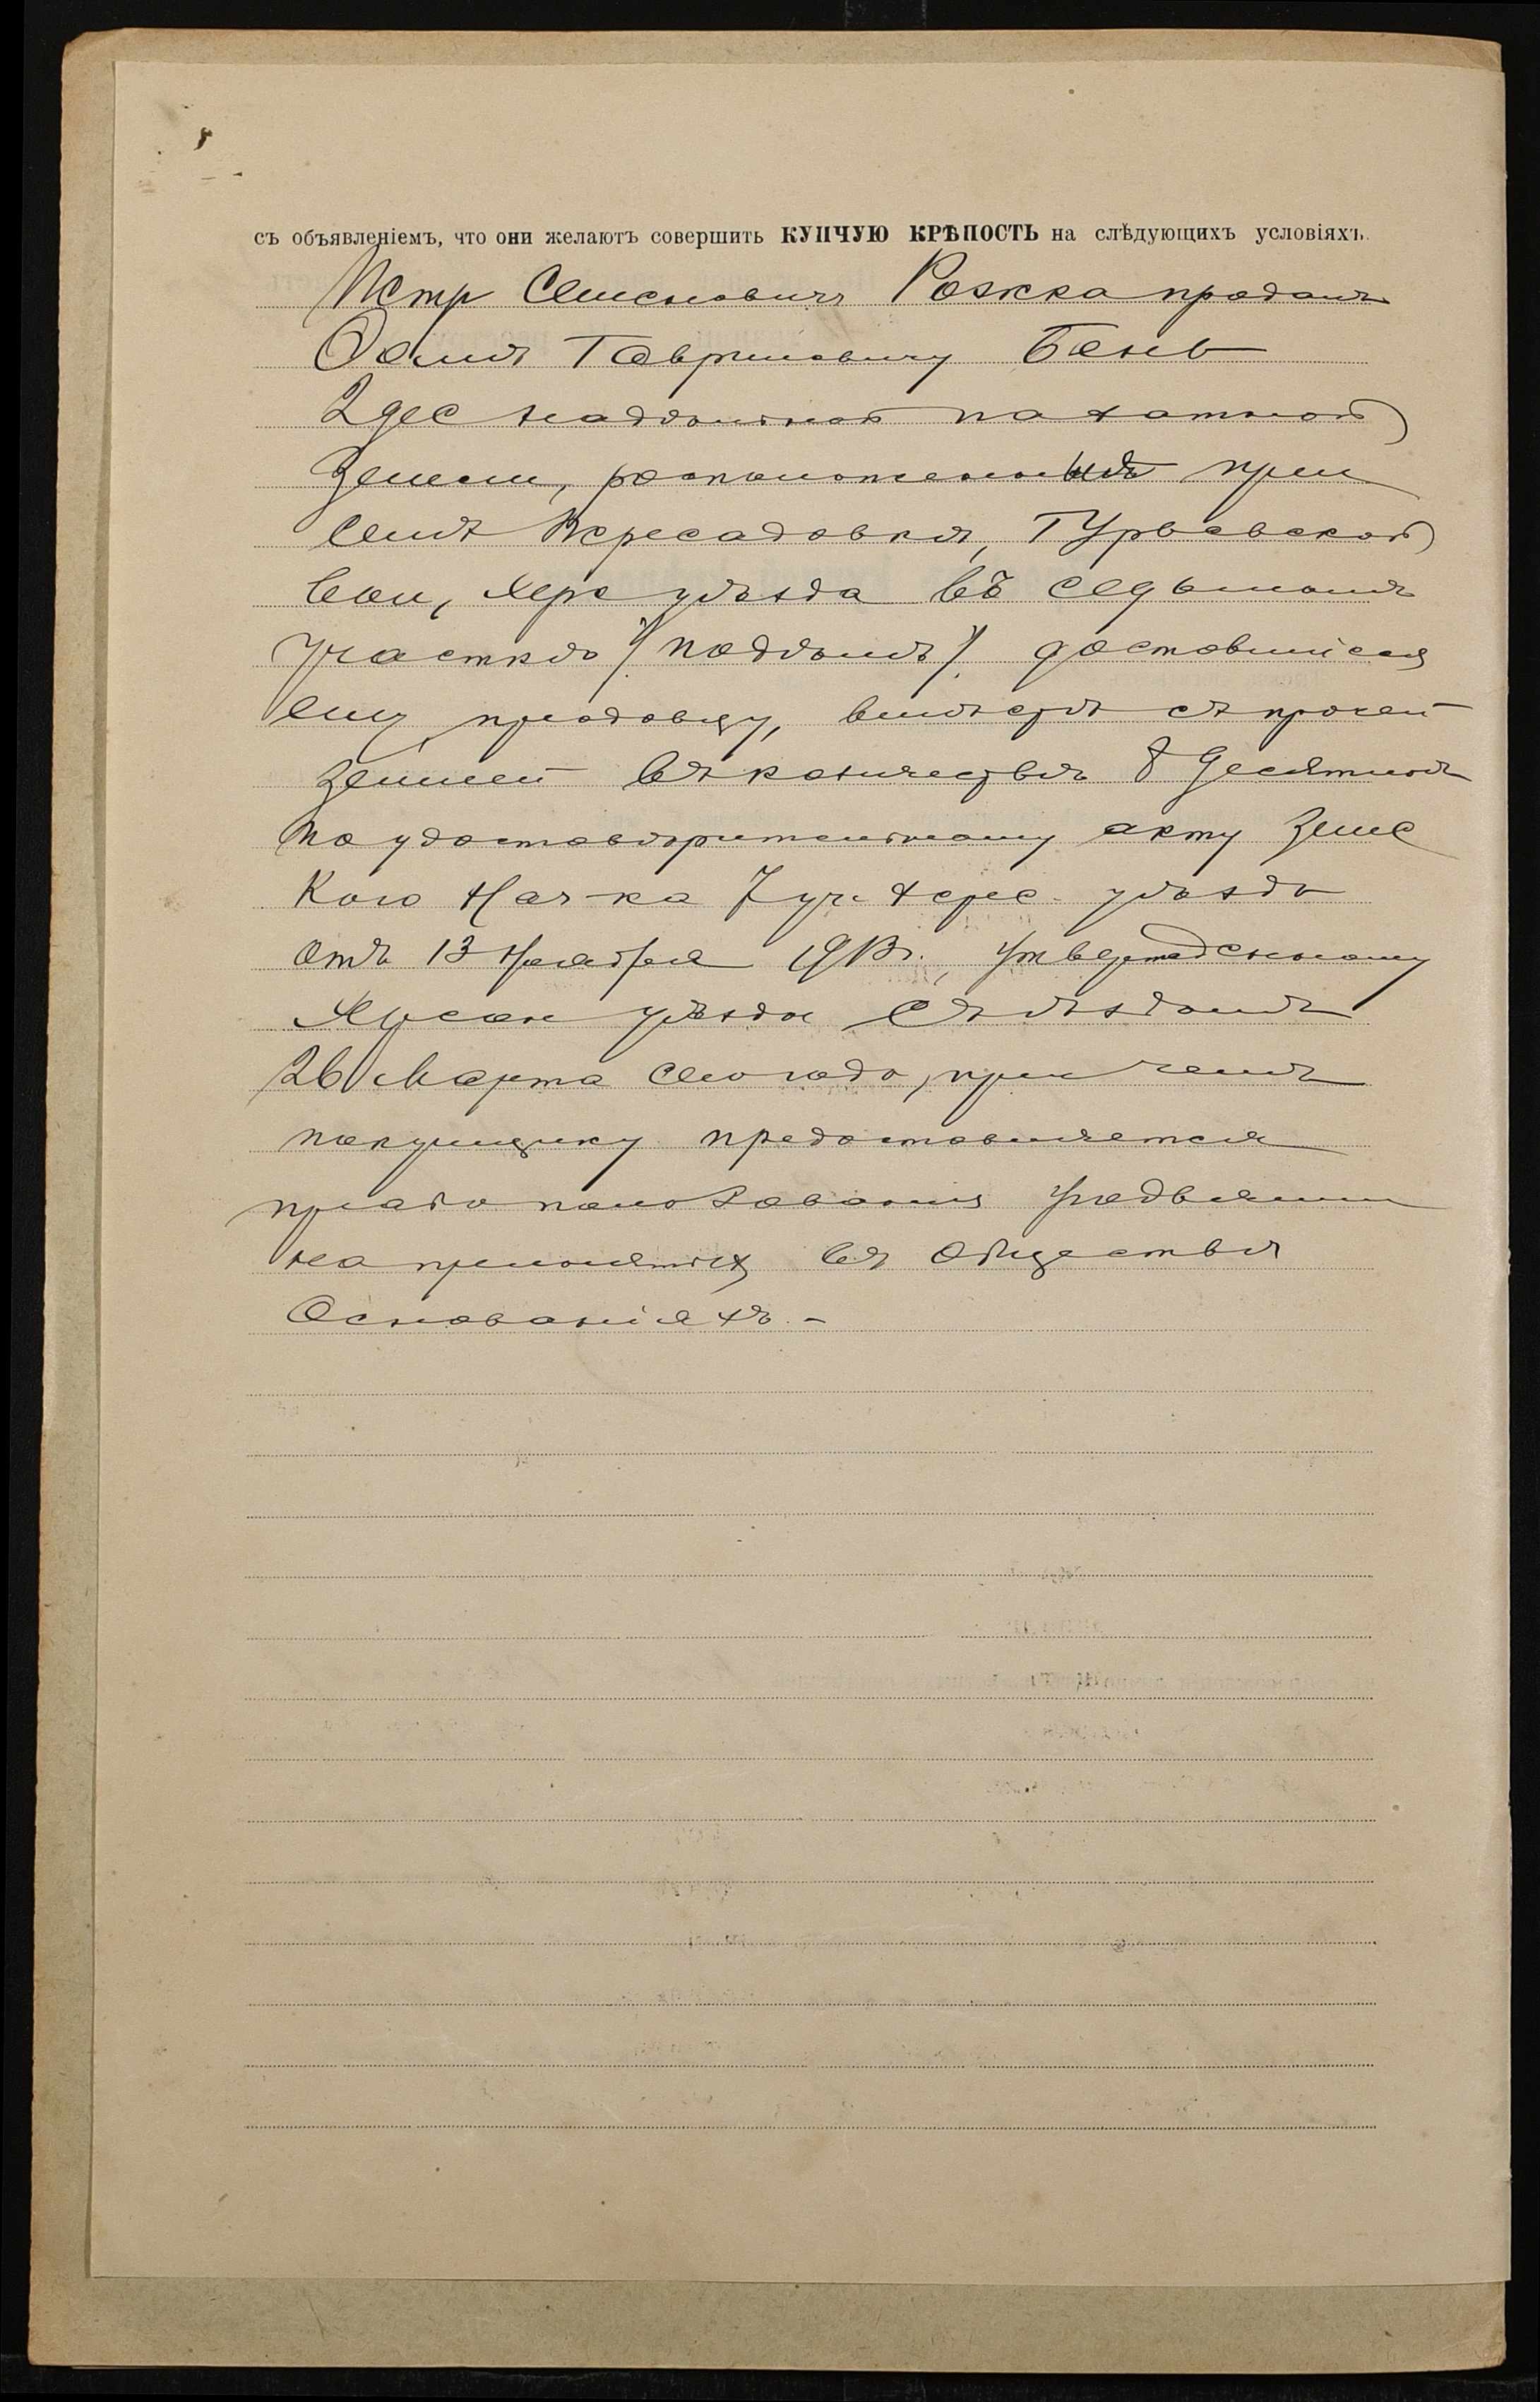 съ объявленіемъ, что они желаютъ совершить КУПЧУЮ КРѢПОСТЬ на слѣдующихъ условіяхъ.
Петръ Семеновичъ Рожка продалъ
Ѳомѣ Гавриловичу Бень
2 дес надѣльной пахатной
земли, расположенной при
селѣ Пересадовкѣ, Гурьевской
вол, Херс уѣзда въ седьмомъ
участкѣ /надѣлѣ/ доставшійся
ему, продавцу, вмѣстѣ съ прочей
землей въ количествѣ 8 десятинъ
по удостовѣрительному акту Земс
кого Нач-ка 7 уч. Херс. уѣзда
отъ 13 Ноября 1913 г., утвержденному
уѣзды Съѣздомъ
26 Марта сего года, при чемъ
покупщику предоставляется
право пользованія усадьбами
на принятыхъ въ обществѣ
основаніяхъ. -